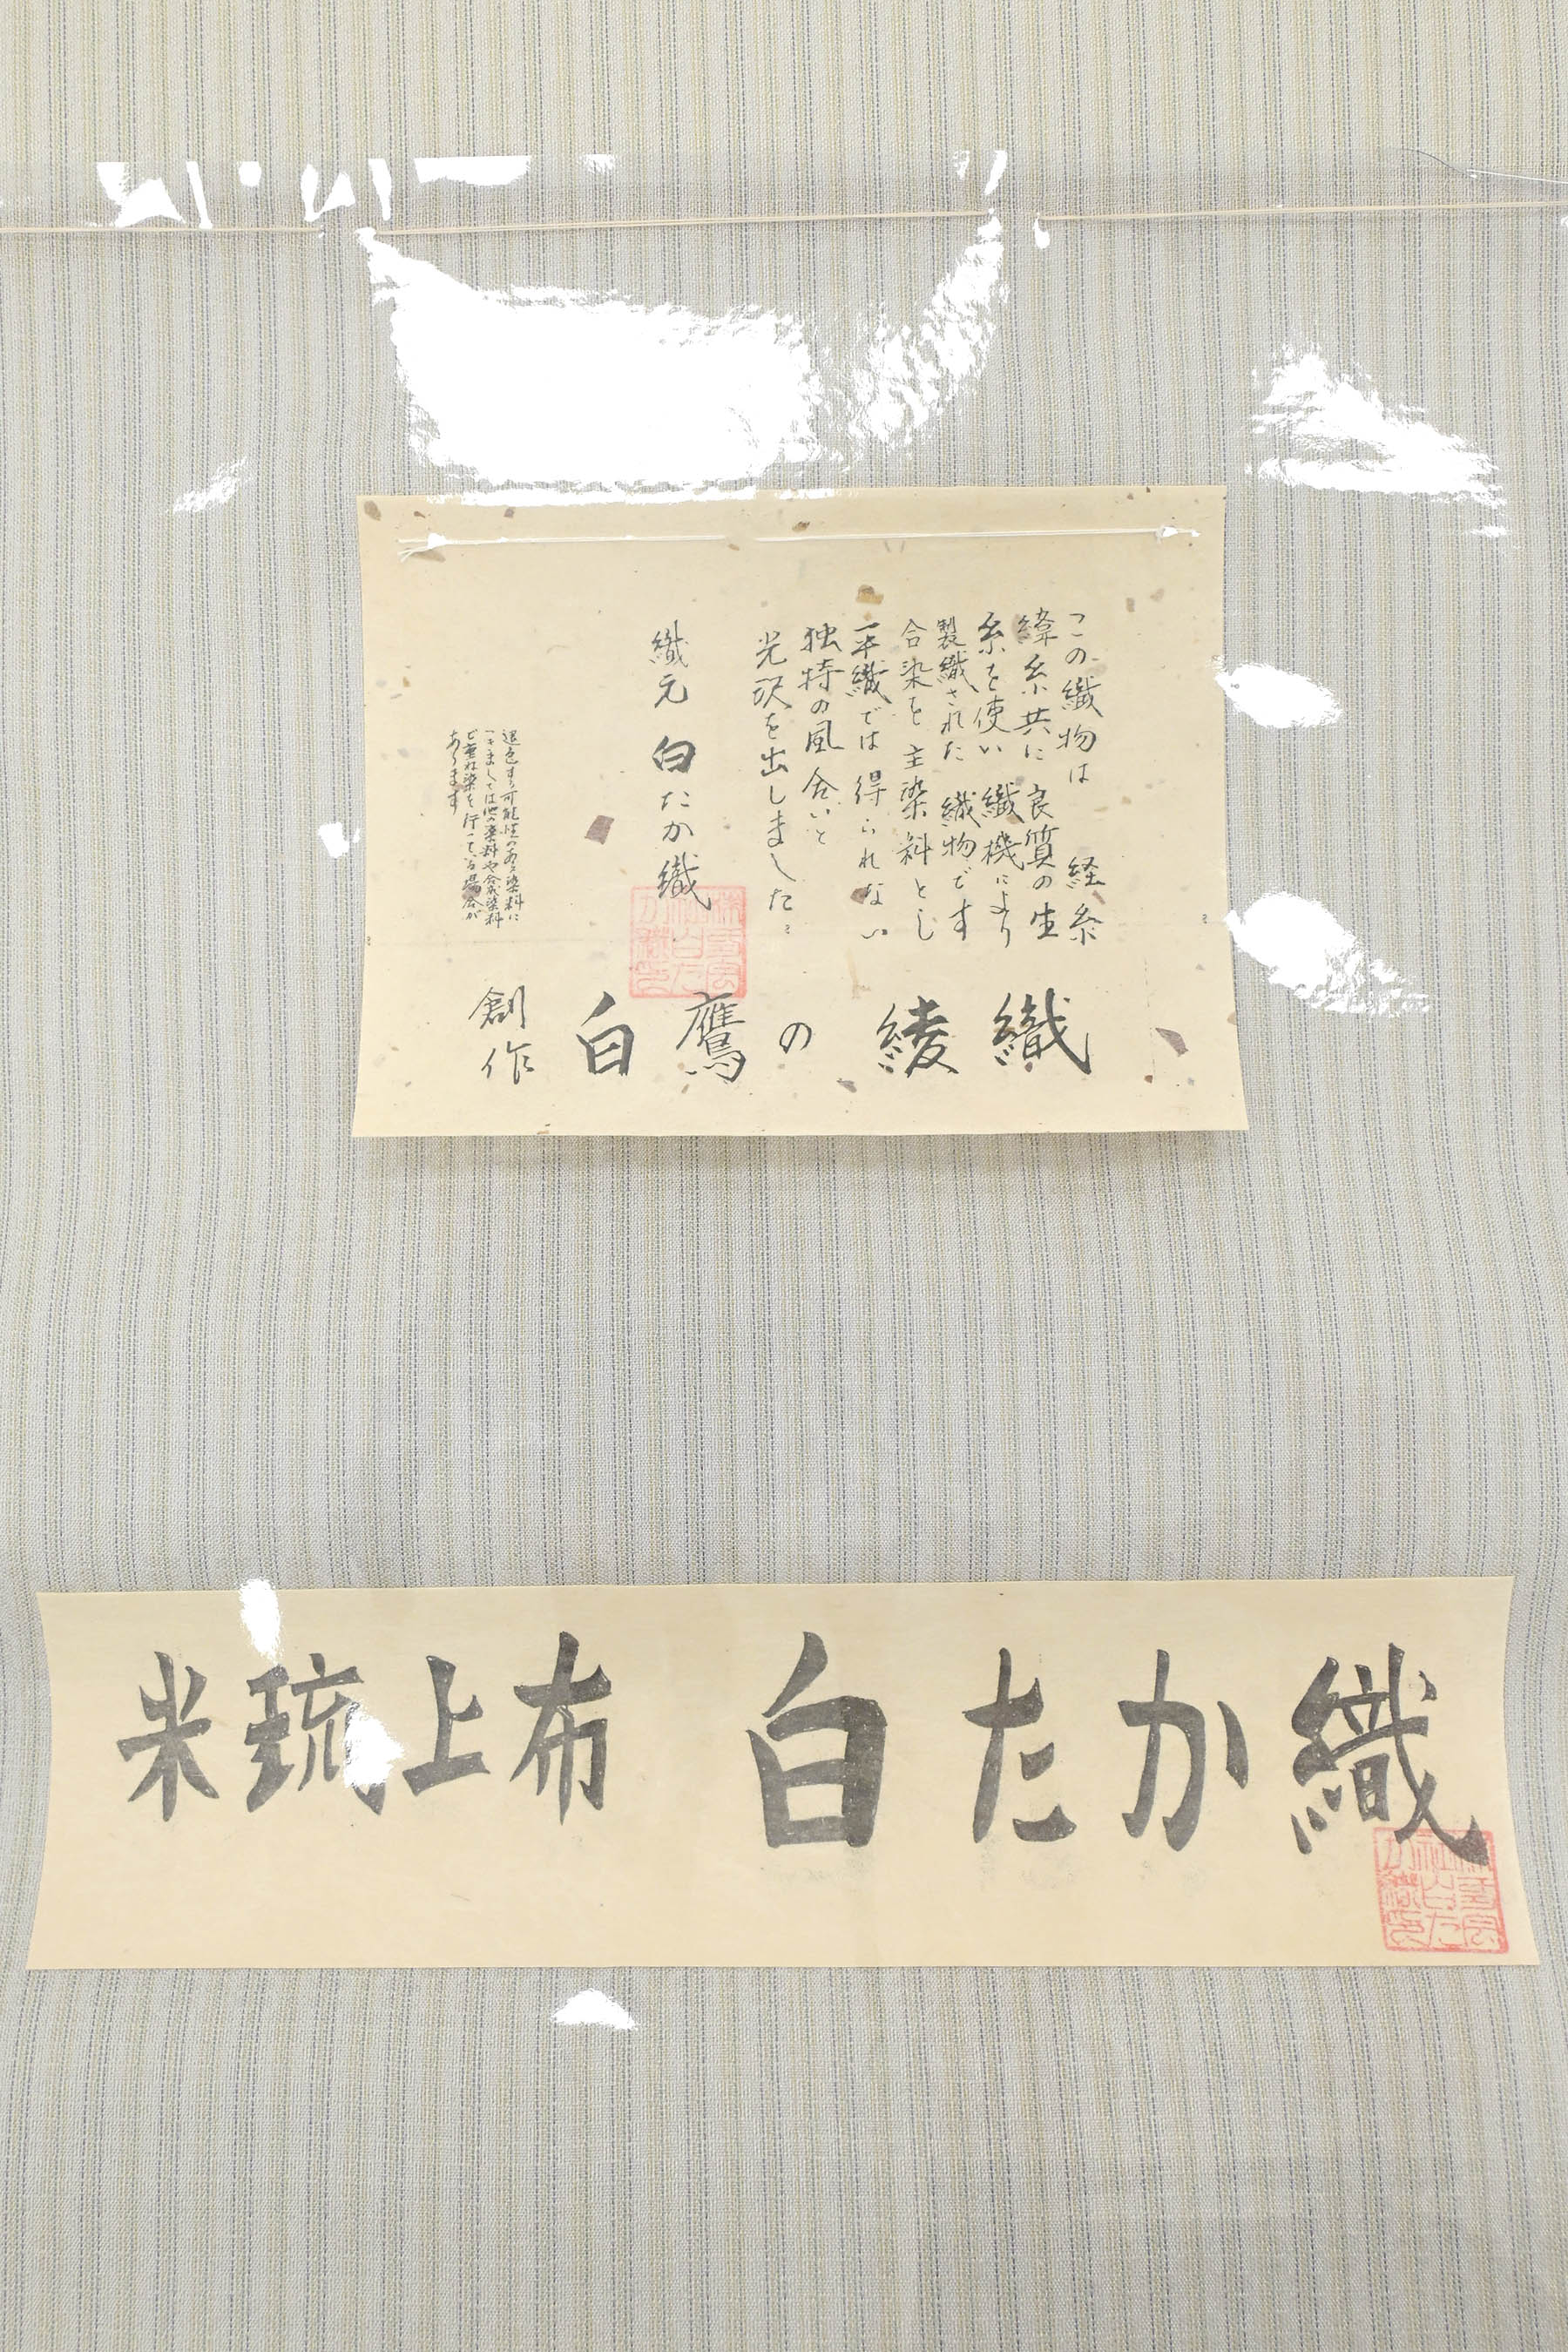 この織物は 経糸
緯糸共に 良質の生
糸を使い 織機により
製織された 織物です
合染を 主染料とし
平織では 得られない
独特の風合いと
光沢を出しました。
織元 白たか織
退色する可能性のある染料に
つきましては他の染料や合成染料
で重ね染を行っている場合が
あります
創作 白鷹の 綾織
米琉上布 白たか織